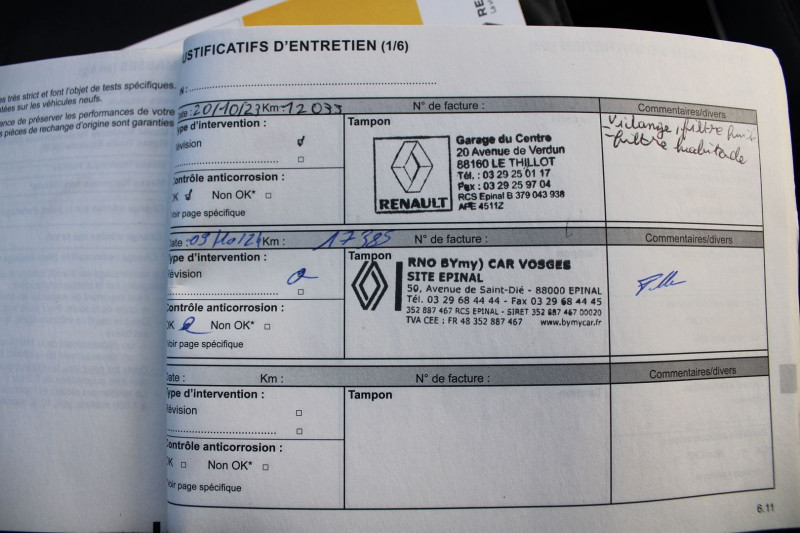 es très strict et font l'objet de tests spécifiques.
sur les véhicules neufs.
ance de préserver les performances de votre
s pièces de rechange d'origine sont garanties
USTIFICATIFS D'ENTRETIEN (1/6)
N :
ate : 20/10/23 Km : 12 033 N° de facture : Commentaires/divers
ype d'intervention :
évision
ontrôle anticorrosion :
OK Non OK*
oir page spécifique
Tampon
RENAULT
Garage du Centre
20 Avenue de Verdun
88160 LE THILLOT
Tél. : 03 29 25 01 17
Fax : 03 29 25 97 04
RCS Epinal B 379 043 938
APE 4511Z
Vidange, filtre
-filtre habitacle
Date : 09/10/24 Km : 17 385 N° de facture : Commentaires/divers
ype d'intervention :
évision
ontrôle anticorrosion :
OK Non OK*
oir page spécifique
Tampon
RNO BYmy) CAR VOSGES
SITE EPINAL
50, Avenue de Saint-Dié - 88000 EPINAL
Tél. 03 29 68 44 44 - Fax 03 29 68 44 45
352 887 467 RCS EPINAL - SIRET 352 887 467 00020
TVA CEE : FR 48 352 887 467 www.bymycar.fr
Date : Km : N° de facture : Commentaires/divers
ype d'intervention :
évision
ontrôle anticorrosion :
OK Non OK*
oir page spécifique
Tampon
6.11